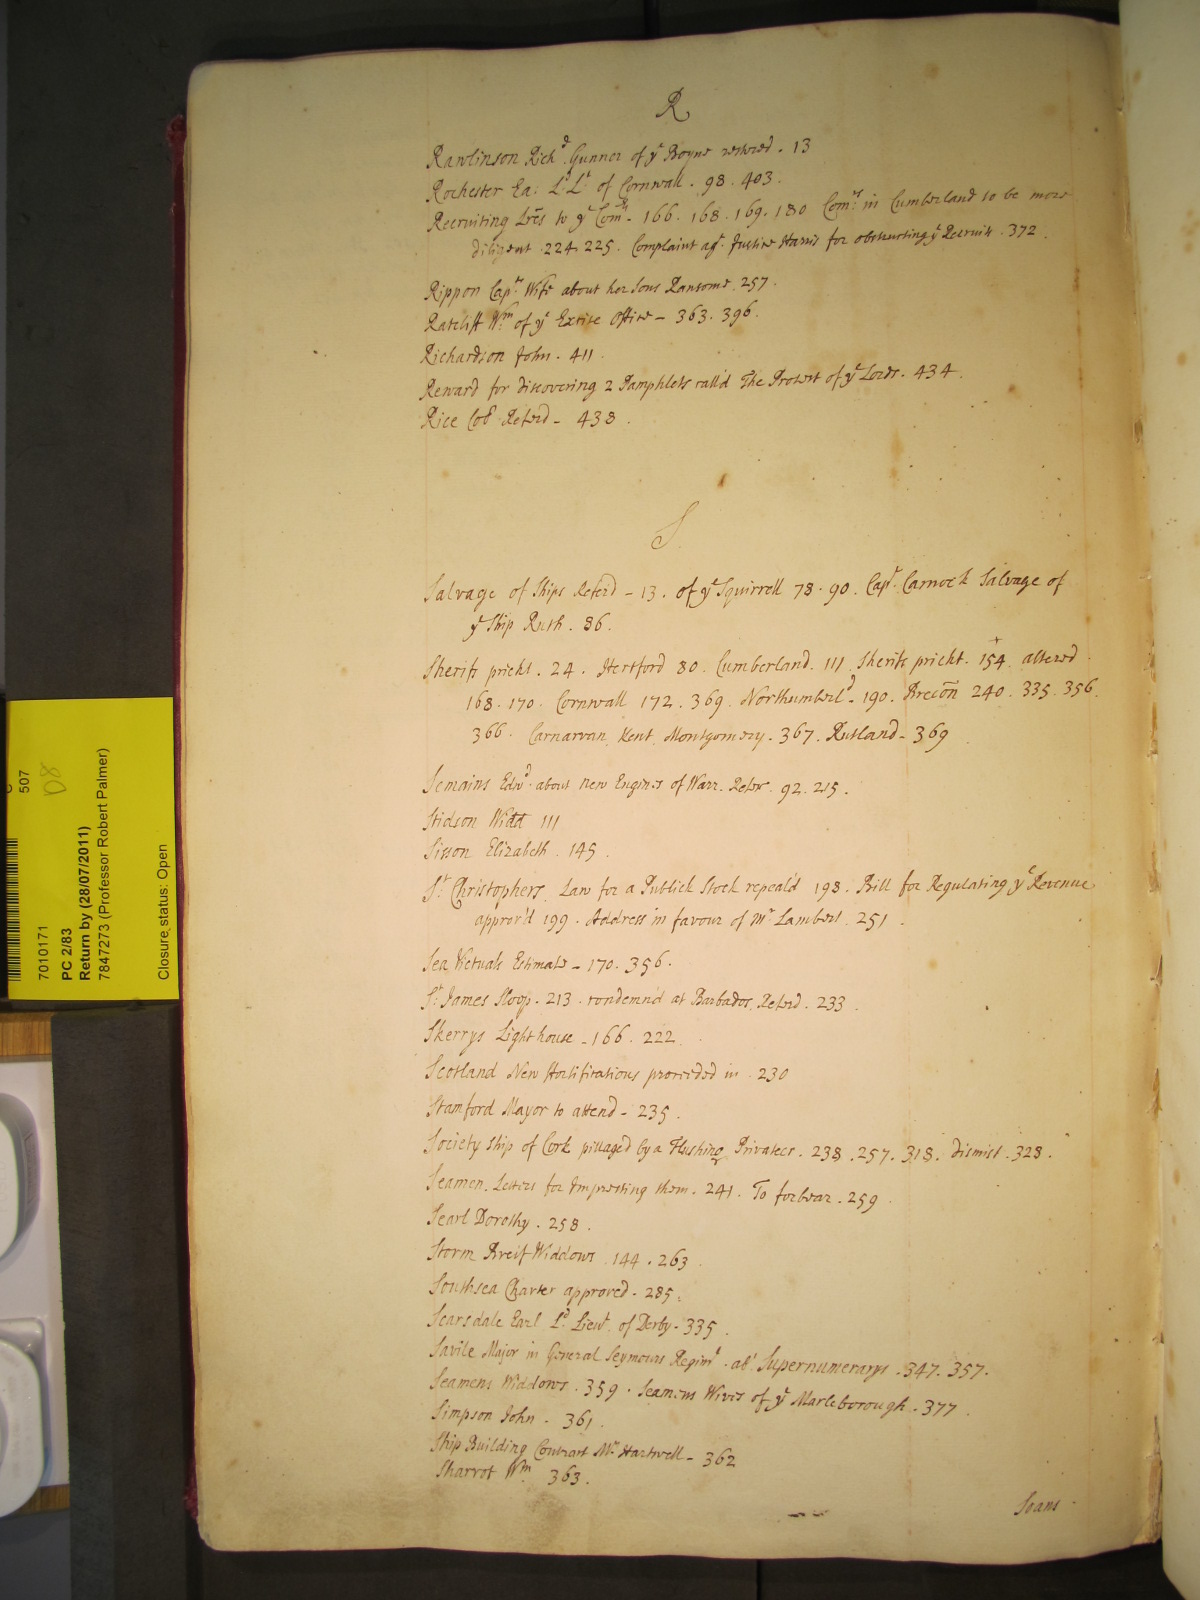 R
Rawlinson Richd. Gunner of ye Boyne referd. 13
Rochester Ea: Ld Lt of Cornwall. 98. 403.
Recruiting Lres to ye Comrs. 166. 168. 169. 180 Comrs in Cumberland to be more
diligent. 224 225. Complaint agt. Justice Harris for obstructing ye Recruits. 372.
Rippon Capts. Wife about her Sons Ransome. 257.
Ratcliff Wm of ye Excise Office - 363. 396.
Richardson John. 411.
Reward for discovering 2 Pamphlets call'd The Protest of ye Lords. 434.
Rice Coll Referd - 438.
S
Salvage of Ships Referd - 13. of ye Squirrell 78. 90. Capt. Carnock Salvage of
ye Ship Ruth. 86.
Sherifs prickt. 24. Hertford 80. Cumberland. 111. Sherifs prickt. 154. altered
168. 170. Cornwall 172. 369. Northumberld. 190. Brecon 240. 335. 356.
366. Carnarvan, Kent, Montgomery. 367. Rutland - 369
Semains Edwd. about new Engines of Warr. Refer. 92. 215.
Stidson Widd 111
Sisson Elizabeth. 145.
St. Christophers. Law for a Publick Stock repeal'd 198. Bill for Regulating ye Revenue
approv'd 199. Address in favour of Mr Lambert. 251.
Sea Victuals Estimate - 170. 356.
St. James Sloop. 213. condemn'd at Barbados, Referd. 233.
Skerrys Lighthouse - 166. 222.
Scotland New Fortifications proceeded in. 230
Stamford Mayor to attend - 235.
Society Ship of Cork pillaged by a Flushing Privateer. 238. 257. 318. dismist. 328.
Seamen. Letters for Impresting them. 241. To forbear. 259
Searl Dorothy. 258.
Storm Breif Widdows 144. 263
Southsea Charter approved. 285.
Scarsdale Earl Ld. Lieut. of Derby - 335.
Savile Major in General Seymours Regimt. abt Supernumerarys. 347. 357.
Seamens Widdows. 359. Seamens Wives of ye Marleborough. 377
Simpson John. 361.
Ship Building Contract Mr. Hartwell - 362
Sharrot Wm 363.
Soans
507
D8
7010171
PC 2/83
Return by (28/07/2011)
7847273 (Professor Robert Palmer)
Closure status: Open